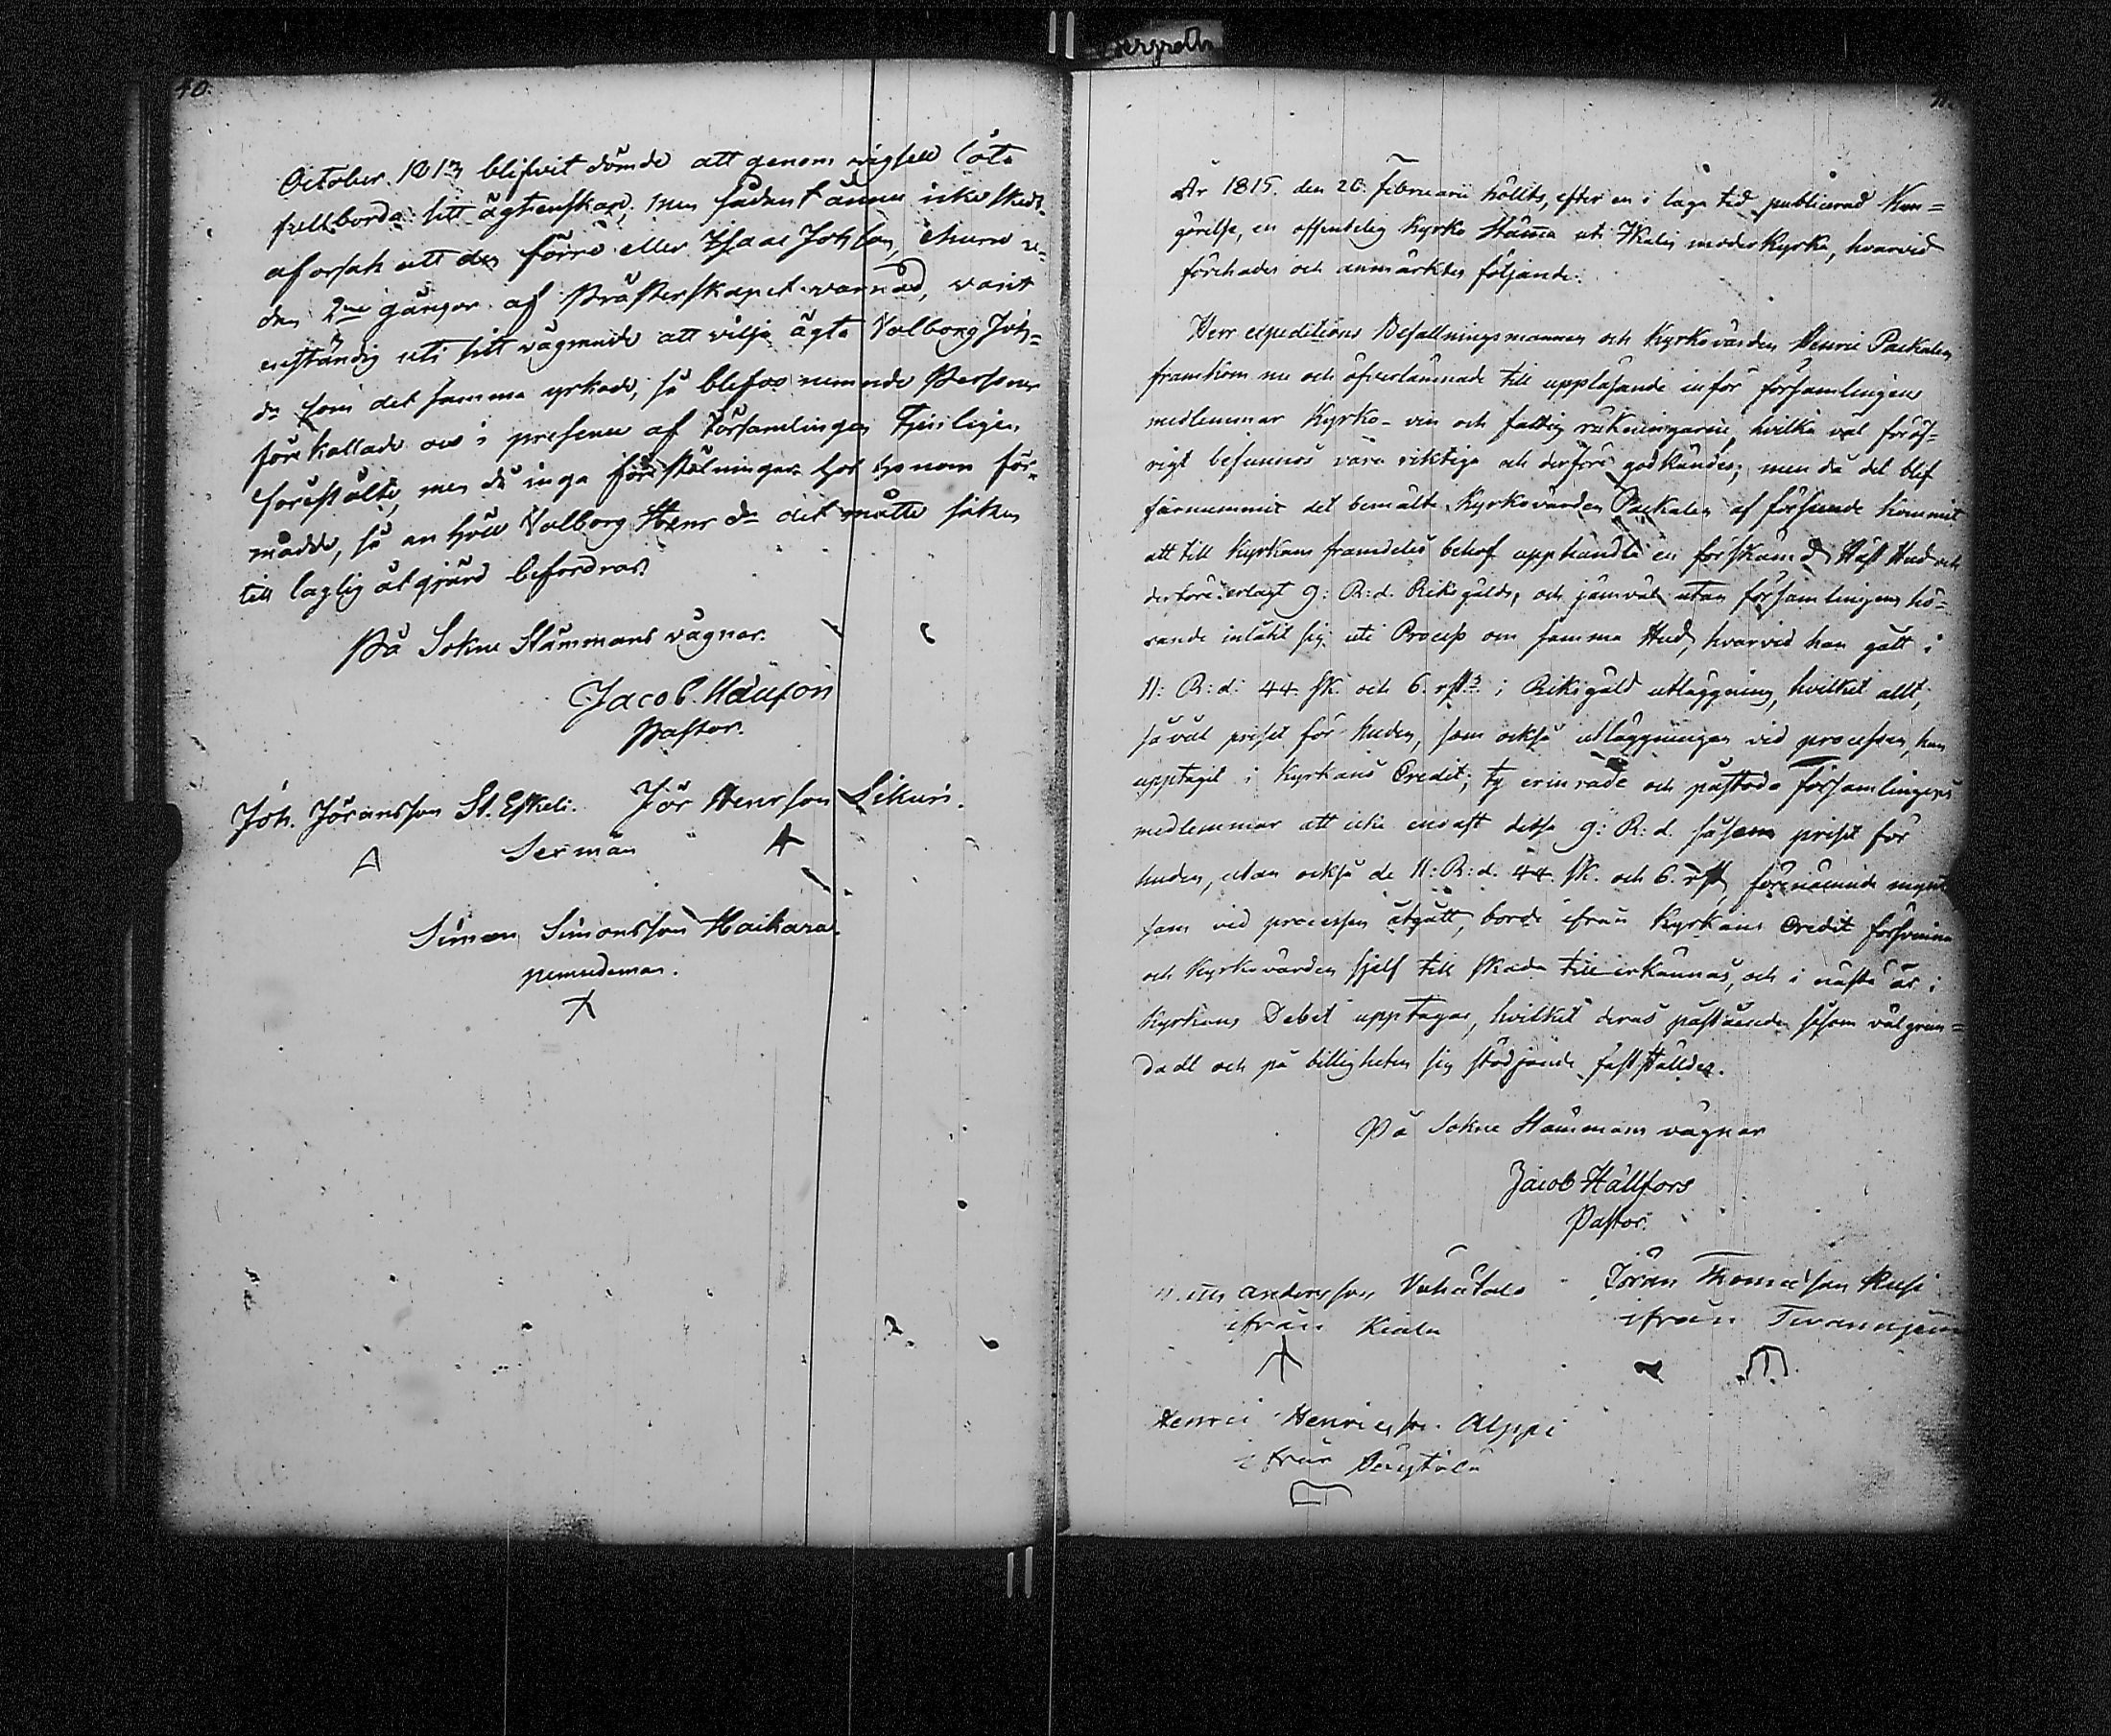 40.
October 1813 blifvit dömde att genom wigsell låta
fullborda sitt ägtenskap, men sådant ännu icke skedt
af orsak att den förre eller Isaac Johsson, ehuru re=
dan 2ne gånger af Prästerskapet warnad, warit
enständig uti sitt wägrande att wilja ägta Walborg Joh=
dr som det samma yrkade, så blefvo nemnde Personer
förekallade och i presence af Församlingen Tjenligen
förestälte, men då inga föreställningar hos honom för=
mådde, så anhöll Valborg Henr dr det måtte saken
till laglig åtgjärd befordras.
På Sokne Stämmans vägnar.
Jacob
Pastor.
Joh. Jöransson St. Eskeli. Jör Henrsson Likuri.
Sexmän
Simon Simonsson Haikara.
nemndeman.
År 1815. den 26 Februarii hölts, efter en i laga tid publicerad Kun=
görelse, en offentelig Kyrko Stäma uti Ikalis moderkyrka, hvarvid
förehades och anmärktes följande:
Herr expeditions Befallningsmannen och Kyrkovärden Henric Packalen
framkom nu och öfverlämnade till uppläsande inför församlingens
medlemmar Kyrko- vin och fattig räkningarne, hvilka väl för öf=
rigt befunnos vara riktiga och derföre godkändes; men då det blef
förnummit det bemälte Kyrkovärden Packalen af församde kommit
att till Kyrkans framdeles behof upphandla en förskämd Häst Hud och
derföre erlagt 9: R:d. Riksgälds, och jämväl utan församlingens hö=
rande inlåtit sig uti Process om samma Hud, hvarvid han gått i
11: R:d: 44. sk. och 6. rst. i Riksgäld utläggning, hvilket allt,
så väl priset för huden, som också utläggningen vid processen, han
upptagit i Kyrkans Credit; ty erinrade och påstodo församlingens
medlemmar att icke endast dessa 9: R:d. såsom priset för
huden, utan också de 11: R:d. 44. sk. och 6. rst. förenämnde mynt
som vid processen åtgått, borde ifrån Kyrkans Credit försvinna
och Kyrkovärden sjelf till skada tillerkännas, och i nästa år i
Kyrkans Debet upptagas, hvilket deras påstående såsom välgrun=
dadt och på billigheten sig stödjande fastställdes.
På Sokne Stämmans vägnar
Jacob Hällfors
Pastor.
Andersson Vahatalo Jöran Thomasson Rusi
ifrån ifrån
Henric Henricsson Alppi
ifrån